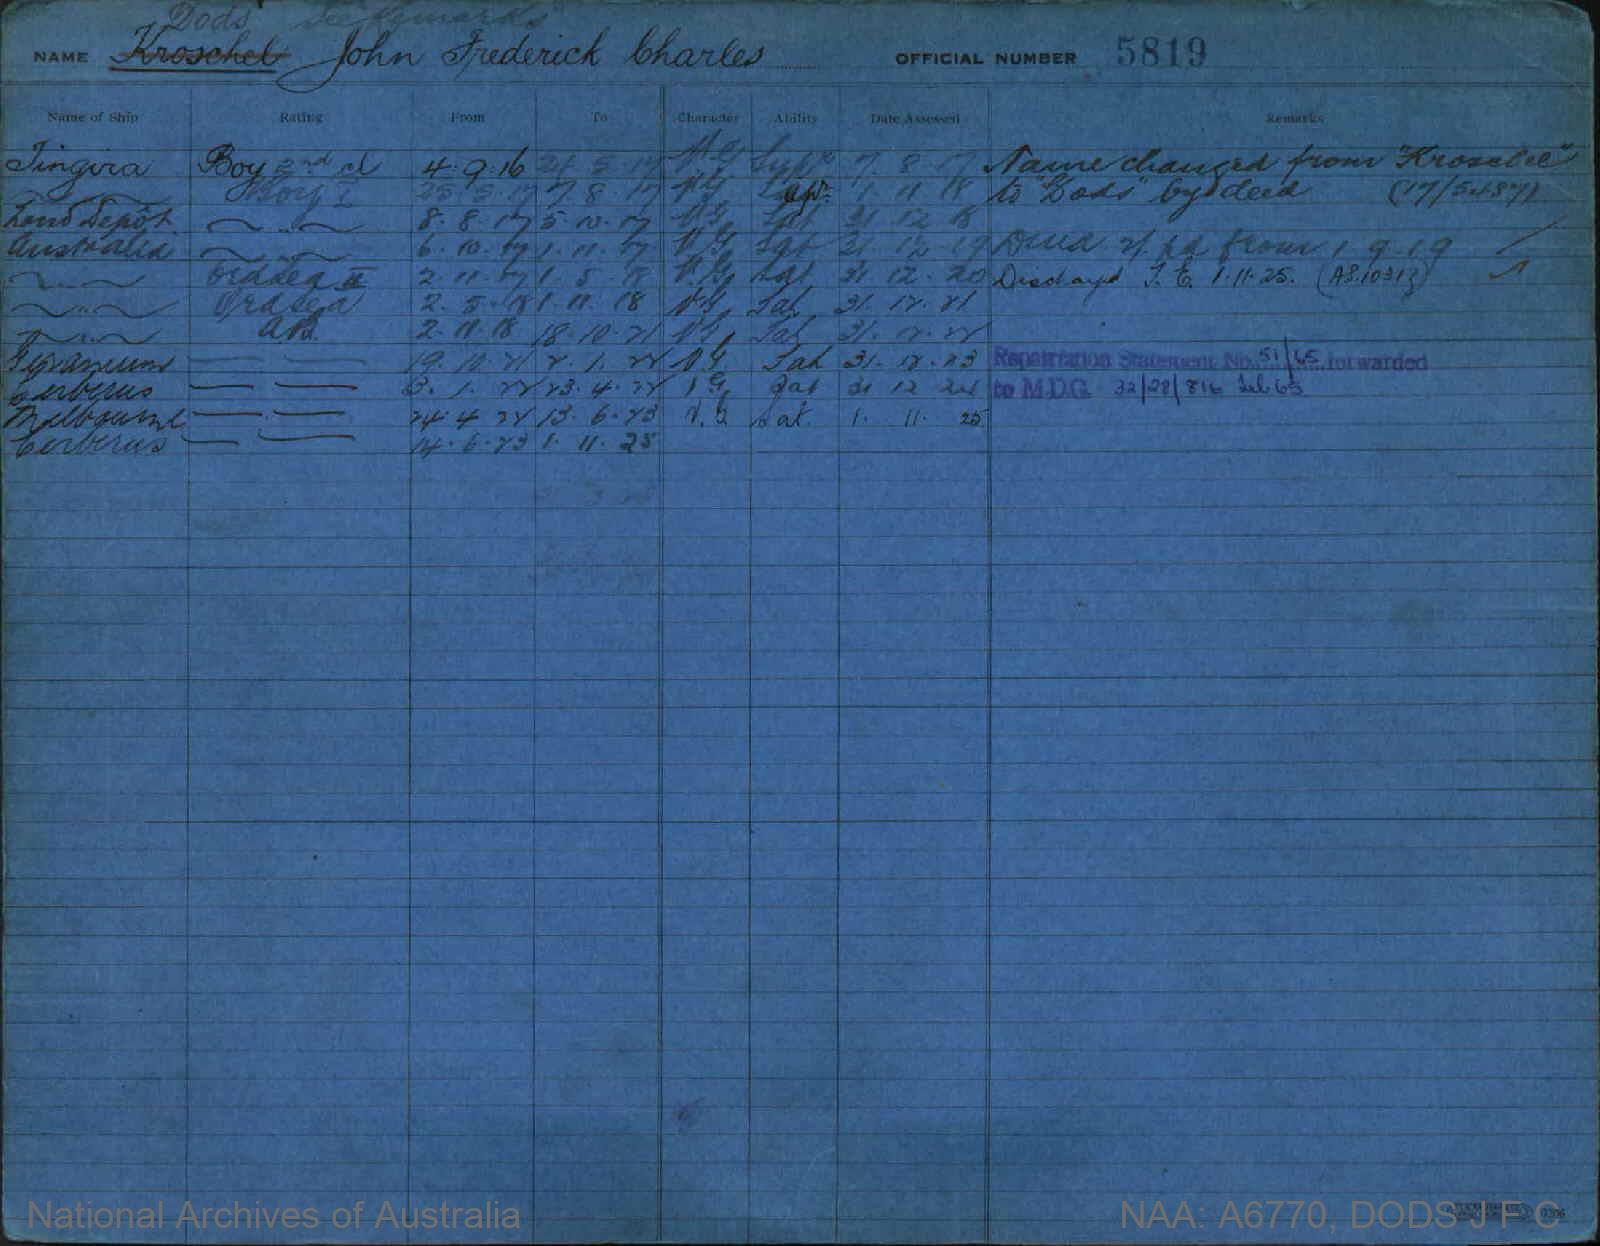 Dods See Remarks
NAME Kroschel John Frederick Charles OFFICIAL NUMBER 5819
Name of Ship Rating From To Character Ability Date Assessed Remarks
Tingira Boy 2nd cl 4·9·16 24·5·17 V.G. 7 8 17 Name changed from "Kroschel"
Boy I 25·5·17 7·8·17 V.G. 1 11 18 to "Dods" by deed (17/5487)
Lond Depôt 8·8·17 5·10·17 V.G. Sat 31 12 18
Australia 6·10·17 1·11·17 V.G. Sat 31 12 19 from 1·9·19
Ord Sea II 2·11·17 1·5·18 V.G. Sat 31 12·20 Discharged S.E. 1·11·25.
Ord Sea 2·5·18 1·11·18 V.G. Sat. 31·12·21
A.B. 2·11·18 18·10·21 V.G. Sat 31·12·22
Geranium 19·10·21 2·1·22 V.G. Sat 31·12·23 Repatriation Statement No. 51/65 forwarded
Cerberus 3·1·22 23·4·22 V.G. Sat 31 12 24 to M.D.G. 32/28/816
Melbourne 24·4·22 13·6·23 V.G. Sat. 1· 11· 25
Cerberus 14·6·23 1·11·25
National Archives of Australia NAA: A6770, DODS J F C